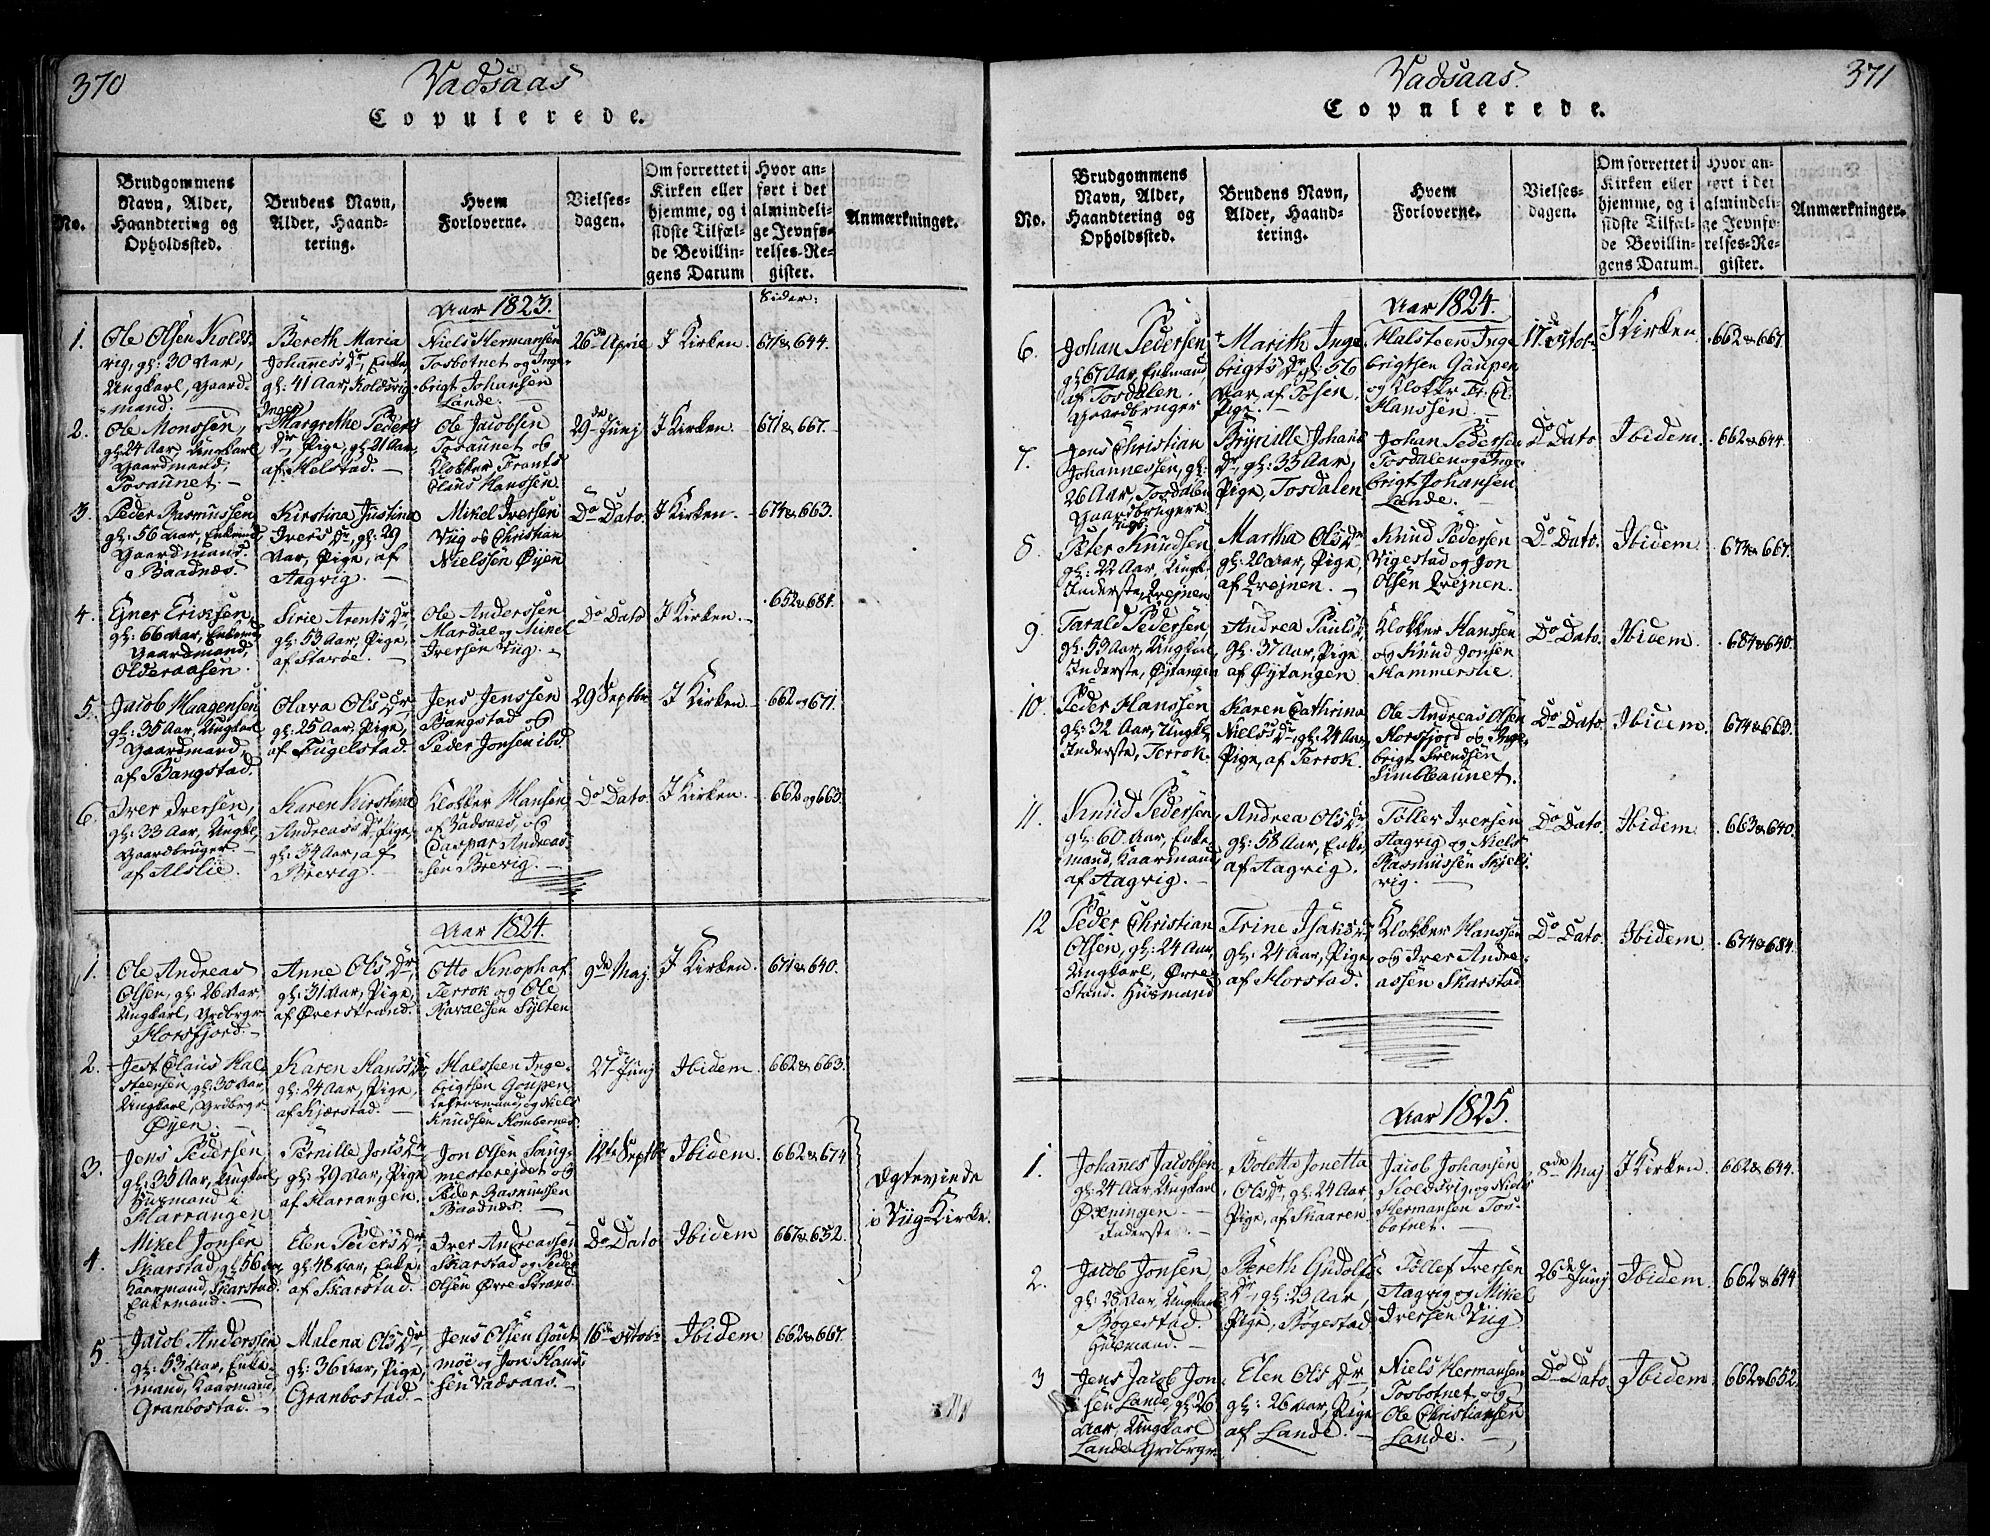 370
Vadsaas
Copulerede.
No.
Brudgommens
Navn, Alder,
Haandtering og
Opholdssted.
Brudens Navn,
Alder, Haand-
tering.
Hvem
Forloverne.
Vielses-
dagen.
Om forrettet i
Kirken eller
hjemme, og i
sidste Tilfæl-
de Bevillin-
gens Datum
Hvor an-
ført i det
almindeli-
ge Jevnfø-
relses-Re-
gister.
Anmærkninger.
Aar 1823.
Sider:
1.
Ole Olsen Kolds-
vig, gl: 30 Aar,
Ungkarl, Gaard-
mand.
Bereth Maria
Johannes Dr, Enke
gl: 41 Aar, Koldsvig
Niels Hermansen
Tosbotnet og Inge-
brigt Johansen
Lande.
26de April
I Kirken.
671 & 644.
2.
Ole Monssen,
gl: 24 Aar, Ungkarl
Gaardmand,
Tosaunet.
Inger
Margrethe Peders
Dr, Pige, gl: 21 Aar,
af Helstad.
Ole Jacobsen
Tosaunet og
Klokker Frants
Claus Hanssen.
29de Junj
I Kirken.
671 & 667.
3.
Peder Rasmussen
gl: 56 Aar, Enkemd,
Gaardmand.
Baadnæs.
Kirstina Justina
Ivers Dr, gl: 29
Aar, Pige, af
Aagvig.
Mikel Iversen
Vug og Christian
Nielssen Øyen
Do Dato.
I Kirken.
674 & 663.
4.
Ejner Eriksen,
gl: 66 Aar, Enkemd,
Gaardmand,
Olderaasen.
Sirie Arents Dr,
gl: 53 Aar, Pige,
af Starøe.
Ole Anderssen
Mardal og Mikel
Iversen Vug.
Do Dato
I Kirken.
652 & 681.
5.
Jacob Haagensen
gl: 35 Aar, Ungkarl
Gaardmand,
af Bangstad.
Olava Ols Dr,
gl: 25 Aar, Pige,
af Fugelstad.
Jens Jenssen
Bangstad og
Peder Jonsen ibd.
29 Septbr
I Kirken.
662 og 671.
6.
Iver Iversen,
gl: 33 Aar, Ungk,
Gaardbruger
af Alslie.
Karen Kirstine
Andreas Dr, Pige,
gl: 34 Aar, af
Brevig.
Klokker Hansen
af Vadsaas, og
Caspar Andreas-
sen Brevig.
Do Dato.
I Kirken.
662 og 663.
Aar 1824.
1.
Ole Andreas
Olsen, gl: 26 Aar,
Ungkarl, Grdbrgr
Horsfjord.
Anne Ols Dr,
gl: 31 Aar, Pige,
af Øverstrand.
Otto Knoph af
Terrok og Ole
Sylten
9de Maj
I Kirken.
671 & 640.
2.
Jest Claus Hal-
steensen, gl: 30 Aar,
Ungkarl, Grdbrgr
Øyen.
Karen Hans Dr,
gl: 24 Aar, Pige,
af Kjærstad.
Halsteen Inge-
brigtsen Goupen,
Lehnsmand, og Niels
Knudsen Hombernes.
27de Junj
Ibidem.
662 & 663.
3.
Jens Pedersen
gl: 35 Aar, Ungkarl,
Husmand i
Harrangen
Pernille Jons Dr
gl: 29 Aar, Pige
af Harrangen.
Jon Olsen Saug-
mesterejdet og
Peder Rasmussen
Baadnæs.
12te Septbr
Ibidem.
662 & 674
Ægteviede
i Vug-Kirke.
4.
Mikel Jonsen
Skarstad, gl: 56 Aar
Kaarmand, Skarstad.
Enkemand.
Elen Peders Dr,
gl: 48 Aar, Enke,
af Skarstad.
Iver Andreassen
Skarstad og Peder
Olsen Øvre Strand.
Do Dato
Ibidem
667 & 652.
5.
Jacob Anderssen
gl: 53 Aar, Enke-
mand, Kaarmand,
Granbostad.
Malena Ols Dr,
gl: 36 Aar, Pige,
Granbostad.
Jens Olsen Gout-
møe og Jon Hans-
sen Vadsaas.
16de Octobr
Ibidem
662 & 667.
371
Vadsaas.
Copulerede.
No.
Brudgommens
Navn, Alder,
Haandtering og
Opholdssted.
Brudens Navn,
Alder, Haand-
tering.
Hvem
Forloverne.
Vielses-
dagen.
Om forrettet i
Kirken eller
hjemme, og i
sidste Tilfæl-
de Bevillin-
gens Datum.
Hvor an-
ført i det
almindeli-
ge Jevnfø-
relses-Re-
gister.
Anmærkninger.
Aar 1824.
6.
Johan Pedersen
gl: 67 Aar, Enkemand,
af Tosdalen.
Gaardbruger
Marith Inge-
brigts Dr gl: 56
Aar, af Tosen,
Pige.
Halsteen Inge-
brigtsen Gaupen
og Klokker Fr: Cl:
Hanssen.
17de Octob.
I Kirken.
662 & 667.
7.
Jens Christian
Johannessen, gl:
26 Aar, Tosdalen
Gaardbruger
Brynille Johans
Dr, gl: 35 Aar,
Pige, Tosdalen
Johan Pedersen
Tosdalen og Inge-
brigt Johansen
Lande.
Do Dato.
Ibidem.
662 & 644.
8.
Peter Knudsen
gl: 22 Aar, Ungk.
Inderste, Trejnen
Martha Ols Dr
gl: 20 Aar, Pige,
af Trejnen.
Knud Pedersen
Vigestad og Jon
Olsen Trejnen.
Do Dato.
Ibidem.
674 & 667.
9.
Tarald Pedersen,
gl: 53 Aar, Ungkarl,
Inderste, Øytangen
Andrea Pauls Dr,
gl: 37 Aar, Pige
af Øytangen.
Klokker Hanssen
og Knud Jonsen
Hammerslie.
Do Dato.
Ibidem.
684 & 640.
10.
Peder Hanssen
gl: 32 Aar, Ungk,
Inderste, Terrok.
Karen Cathrina
Niels Dr, gl: 24 Aar,
Pige, af Terrok.
Ole Andreas Olsen
Horsfjord og Inge-
brigt Svendsen
Simblaunet.
Do Dato.
Ibidem.
674 & 663.
11.
Knud Pedersen,
gl: 60 Aar, Enke-
mand, Kaarmand
af Aagvig.
Andrea Ols Dr
gl: 58 Aar, Enke,
af Aagvig.
Toller Iversen
Aagvig og Niels
Rasmussen Skjel-
vig.
Do Dato.
Ibidem.
663 & 640.
12
Peder Christian
Olsen, gl: 24 Aar,
Ungkarl, Øvre-
Stand. Husmand
Trine Isaks Dr,
gl: 24 Aar, Pige,
af Horstad.
Klokker Hanssen
og Iver Andre-
assen Skarstad
Do Dato.
Ibidem.
674 & 684.
Aar 1825.
1.
Johannes Jacobsen
gl: 24 Aar, Ungkarl
Inderste.
Boletta Jonetta
Ols Dr, gl: 24 Aar
Pige, af Skaaren
Jacob Johansen
Koldsvig og Niels
Hermansen Tos-
botnet.
8de Maj
I Kirken.
662 & 644.
2.
Jacob Jonsen,
gl: 25 Aar, Ungkarl
Bøgestad.
Husmand.
Bereth Gudolfs
Dr, gl: 23 Aar,
Pige, Bøgestad
Tollef Iversen
Aagvig og Mikel
Iversen Vug
26de Junj
Ibidem.
662 & 644
3
Jens Jacob Jon-
sen Lande, gl: 26
Aar, Ungkarl
Lande Grdbrgr.
Elen Ols Dr,
gl: 26 Aar, Pige
af Lande.
Niels Hermansen
Tosbotnet og
Ole Christiansen
Lande.
Do Dato
Ibidem.
662 & 652.